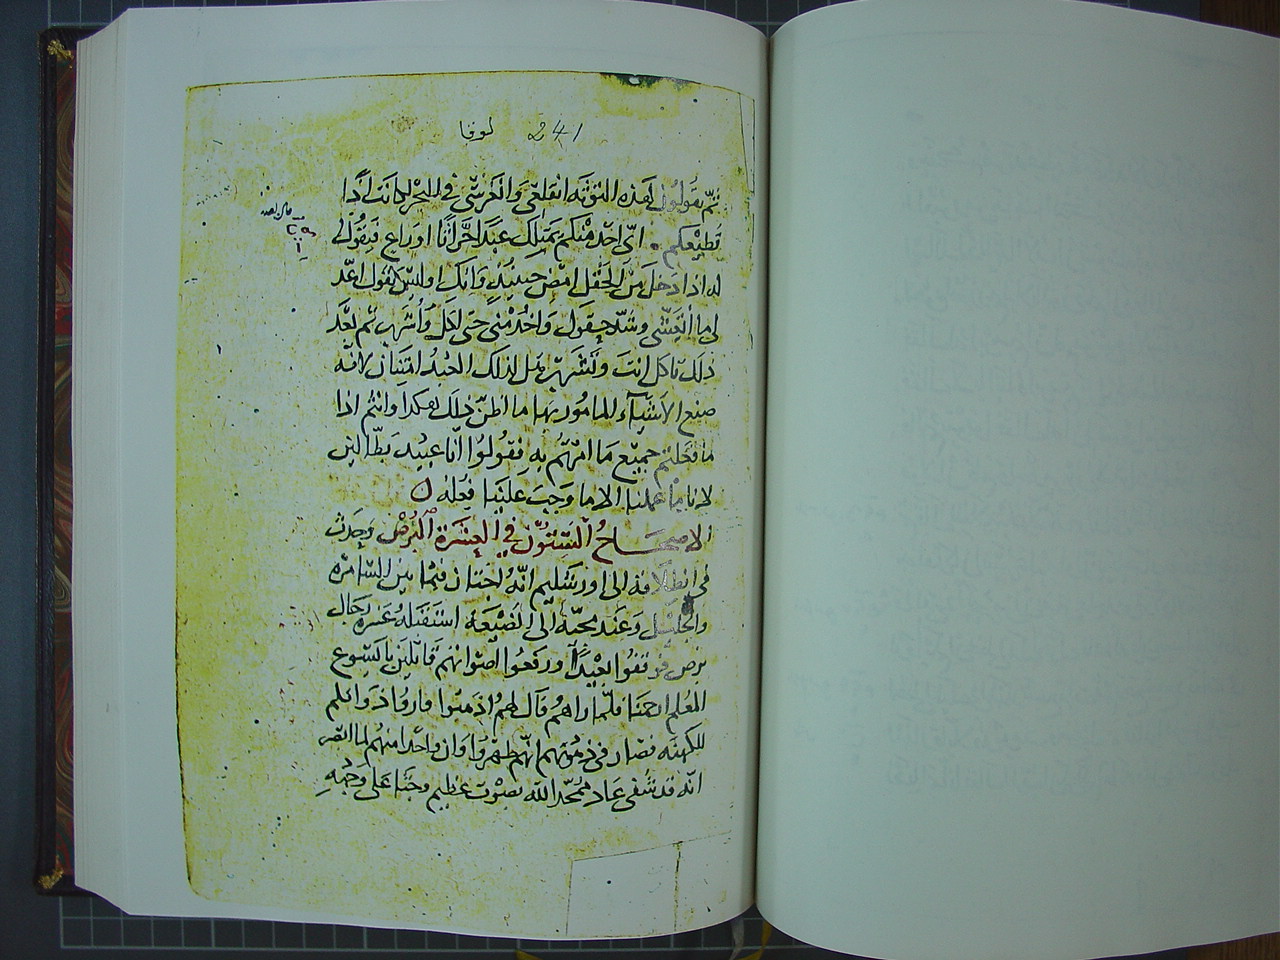 241 لوقا
ثم تقولون لهذه التوته انقلعي وانغرسي في البحر لكانت اذًا
تطيعكم. اتى احد منكم يمتلك عبدًا حراثًا او راعٍ فيقول
له اذا دخل من الحقل امض حينيذ واتكي اوليس يقول اعد
لي ما اتعشى وشد حقول واخدمني حتى اكل واشرب ثم بعد
ذلك تاكل انت وتشرب هل لذلك العبد امتنان لانه
صنع الاشياء المامور بها ما اظن ذلك هكدا وانتم اذا
ما فعلتم جميع ما امرتم به فقولوا انا عبيد بطالين
لانا ما عملنا الا ما وجب علينا فعله ن
الاصحاح الستون في العشرة البرص وحدث
في انطلاقه الى اورشليم انه اجتاز فيما بين السامره
والجليل وعند مجيه الى الضيعه استقبله عشره رجال
برص فوقفوا بعيدًا ورفعوا اصواتهم قايلين يا يسوع
المعلم ارحمنا فلما راهم قال لهم اذهبوا فاروا ذواتكم
للكهنه فصار في ذهوبهم انهم طهروا وان واحدا منهم لما ابصر
انه قد شفى عاد ممجد الله بصوت عظيم وجثا على وجهه